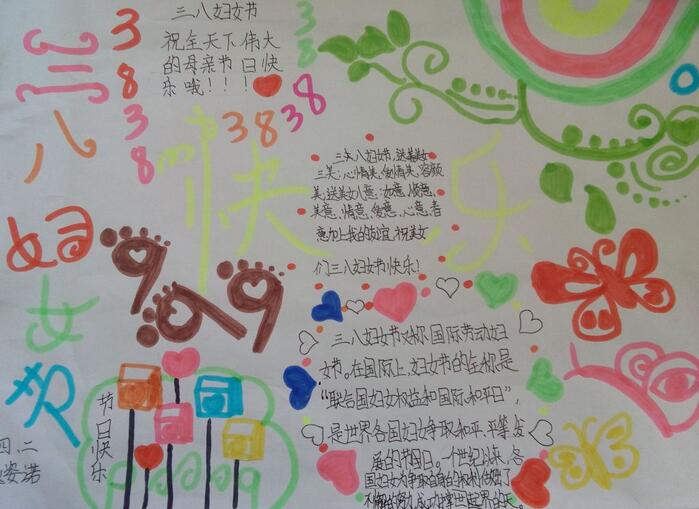 三八妇女节
祝全天下伟大
的母亲节日快
乐哦！！！
三
八
妇
女
节
38
38
38
38
快乐
三八妇女节,送美女
三美:心情美,爱情美,容颜
美,送美女八意:如意,顺意,
美意,情意,爱意,心意,者
意加上我的友谊,祝美女
们三八妇女节快乐!
三八妇女节又称国际劳动妇
女节。在国际上,妇女节的全称是
“联合国妇女权益和国际和平日”,
是世界各国妇女争取和平、平等、发
展的节日。一个世纪以来,各
国妇女为争取自身的权利做出了
不懈的努力,成功撑世世界的天。
节日快乐
四、二
姿诺